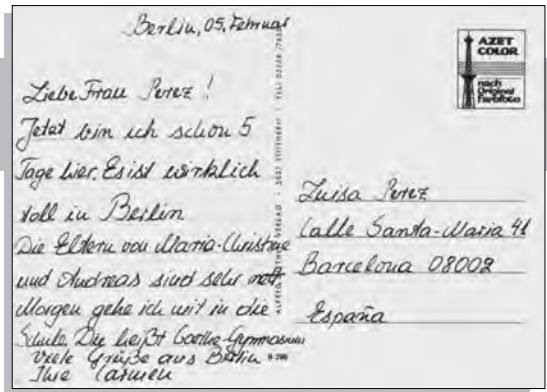 Berlin, 05. Februar
Liebe Frau Perez!
Jetzt bin ich schon 5
Tage hier. Es ist wirklich
toll in Berlin
Die Eltern von Maria-Christine
und Andreas sind sehr nett
Morgen gehe ich mit in die
Schule. Die heißt Goethe-Gymnasium
Viele Grüße aus Berlin
Ihre Carmen
AZET
COLOR
nach
Original
Farbfoto
Luisa Perez
Calle Santa-Maria 41
Barcelona 08002
España